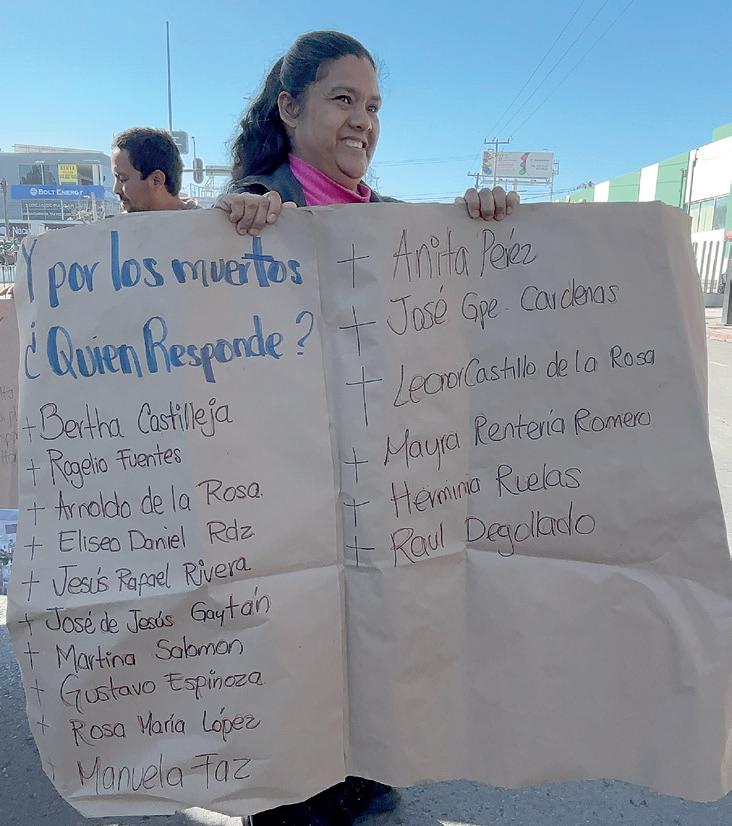 BOLT ENERGY
Y por los muertos
¿Quien Responde?
+ Bertha Castilleja
+ Rogelio Fuentes
+ Arnoldo de la Rosa
+ Eliseo Daniel Rdz
+ Jesús Rafael Rivera
+ José de Jesús Gaytán
+ Martina Salomon
+ Gustavo Espinoza
+ Rosa María López
+ Manuela Faz
+ Anita Peréz
+ José Gpe. Cardenas
+ Leonor Castillo de la Rosa
+ Mayra Rentería Romero
+ Herminia Ruelas
+ Raul Degollado